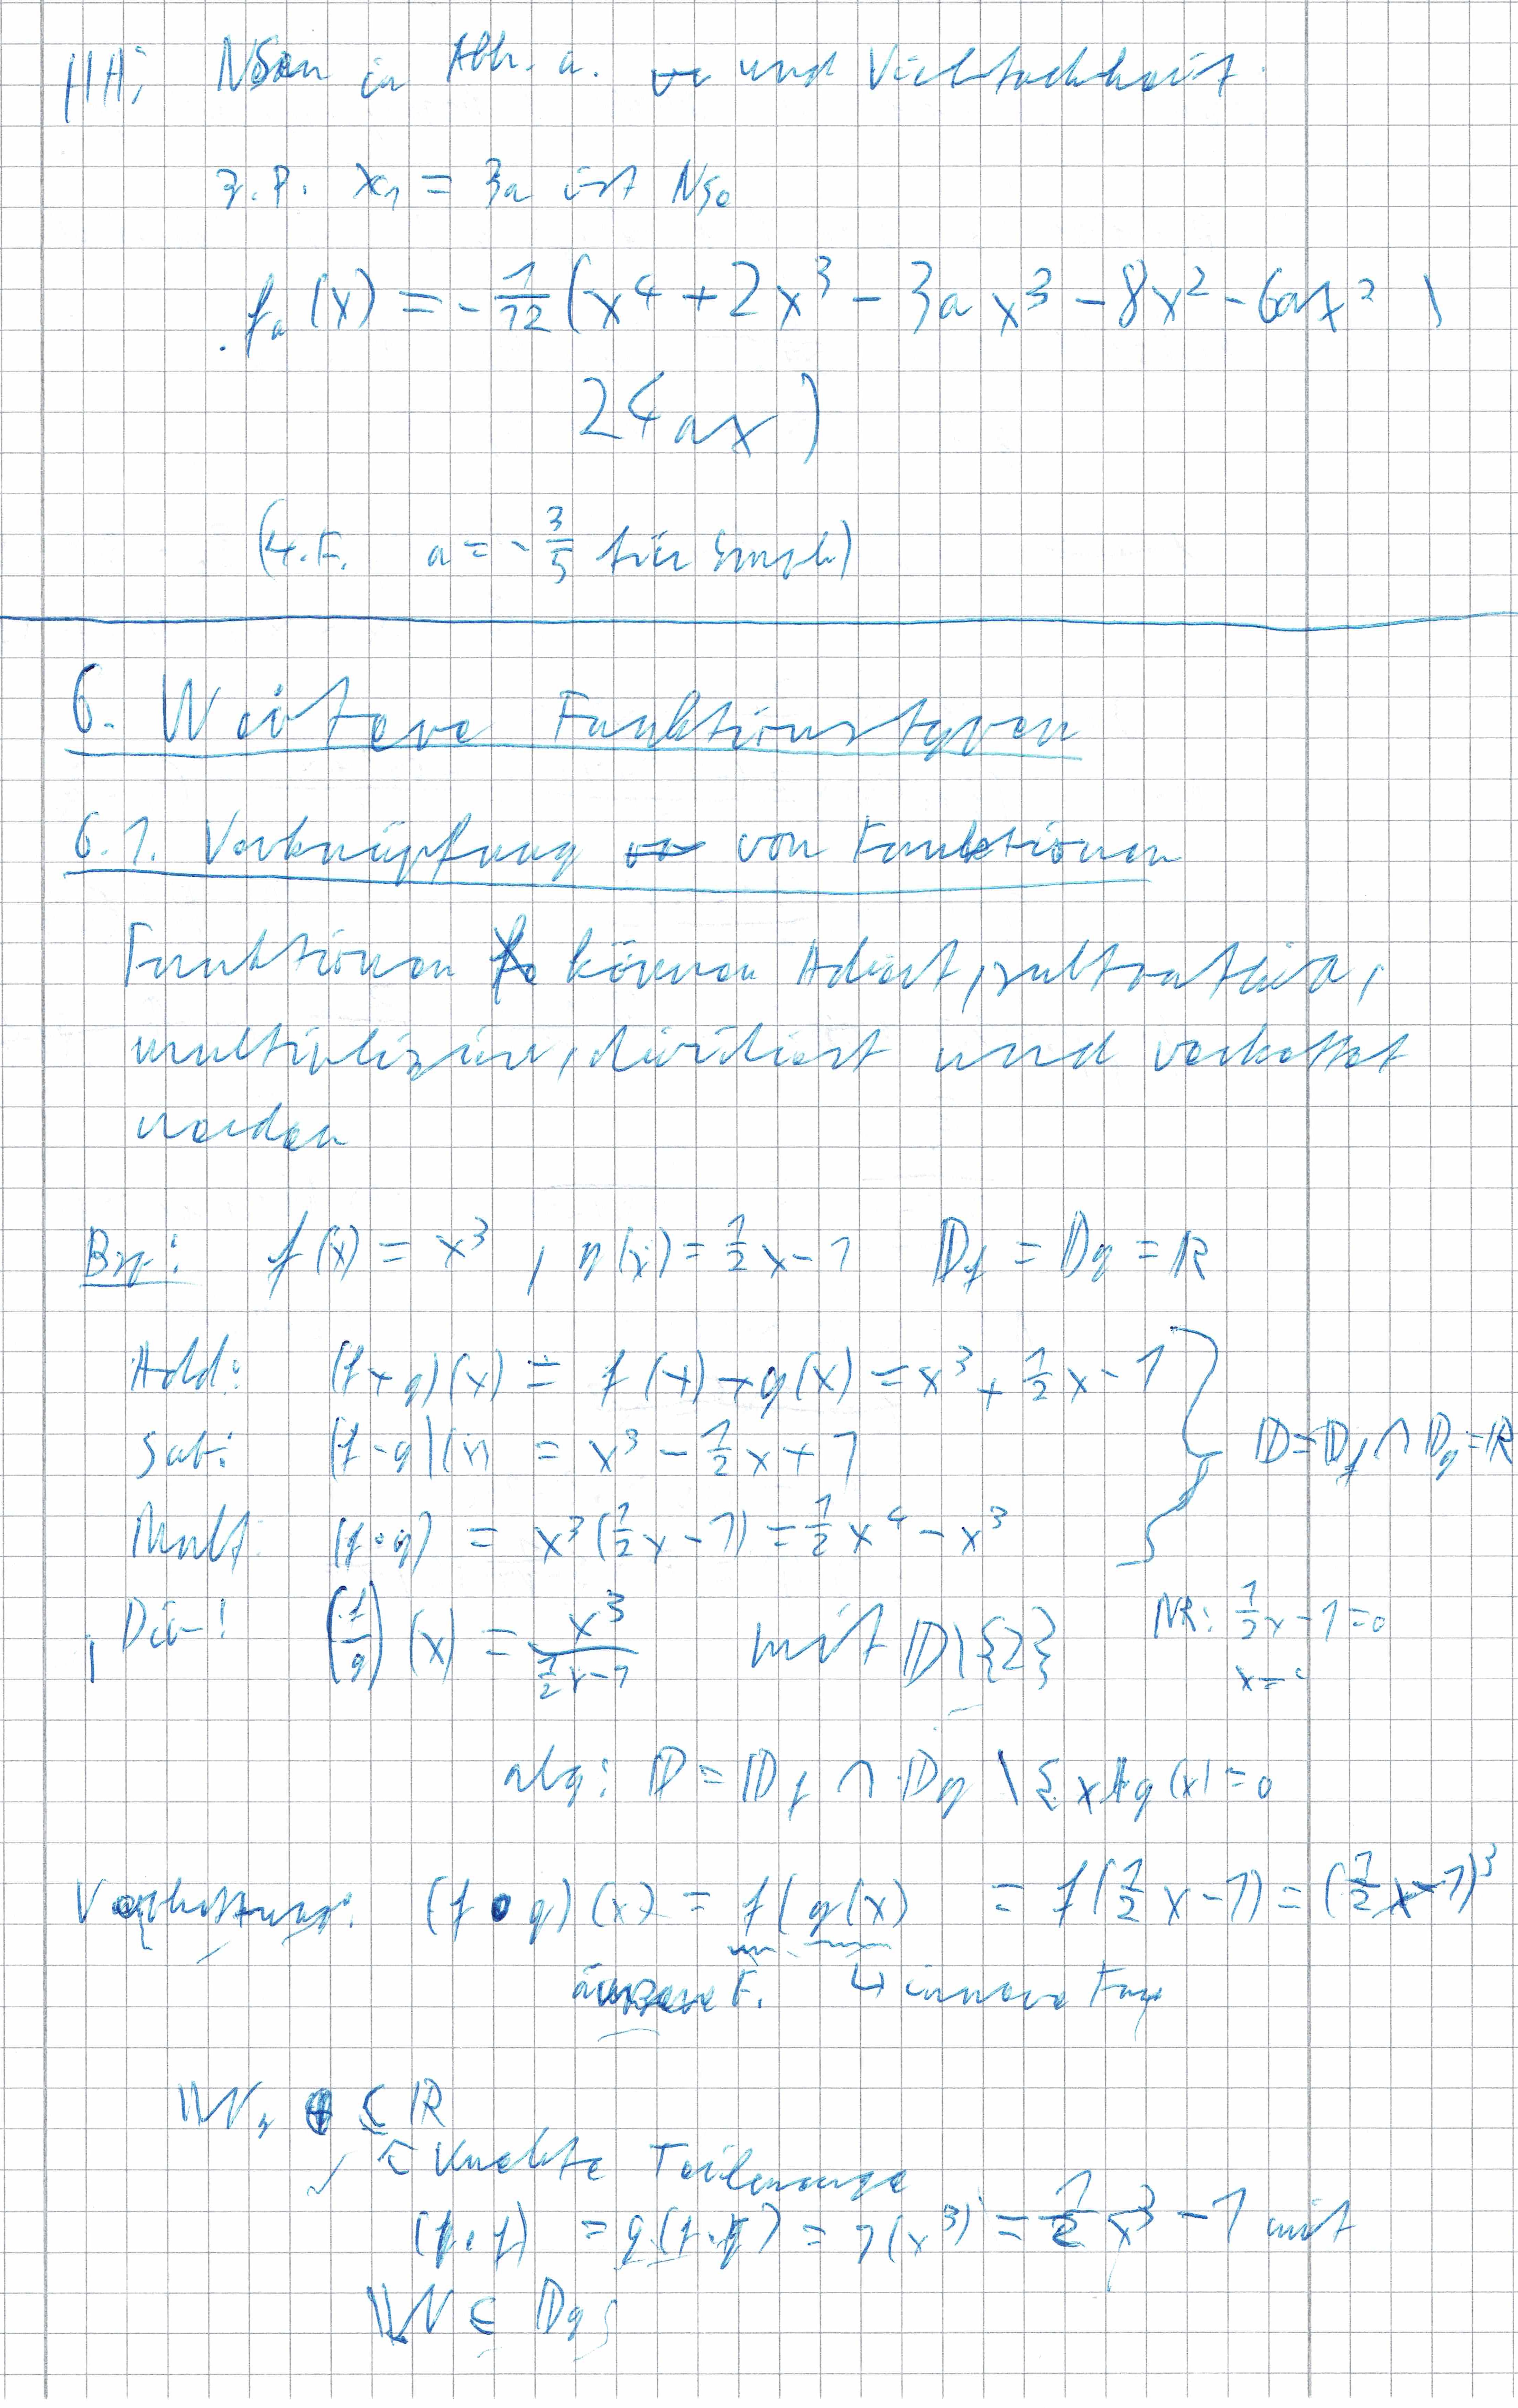 HA: NSen in Abh. a. und Vielfachheit.
z.B. x₁ = 3a ist NS
fₐ(x) = -1/12 (x⁴ + 2x³ - 3ax³ - 8x² - 6ax²
24ax)
a = -3/5 für
6. Weitere Funktionstypen
6.1. Verknüpfung von Funktionen
Funktionen können Adiert, subtratiert,
multiplizire, dividiert und verkettet
werden
Bsp: f(x) = x³, g(x) = 1/2 x - 1 D_f = D_g = ℝ
Add: (f+g)(x) = f(x) + g(x) = x³ + 1/2 x - 1
Sub: (f-g)(x) = x³ - 1/2 x + 1 D = D_f ∩ D_g = ℝ
Mult: (f·g) = x³(1/2 x - 1) = 1/2 x⁴ - x³
Div: (f/g)(x) = x³/(1/2 x - 1) mit D\{2} NR: 1/2 x - 1 = 0
x =
alg: D = D_f ∩ D_g \ {x | g(x) = 0
Verkettung: (f∘g)(x) = f(g(x) = f(1/2 x - 1) = (1/2 x - 1)³
äussere F. ↳ innere Fkt
W_g ⊆ ℝ
Teilmenge
= g(x³) = 1/2 x³ - 1 mit
W ⊆ D_g